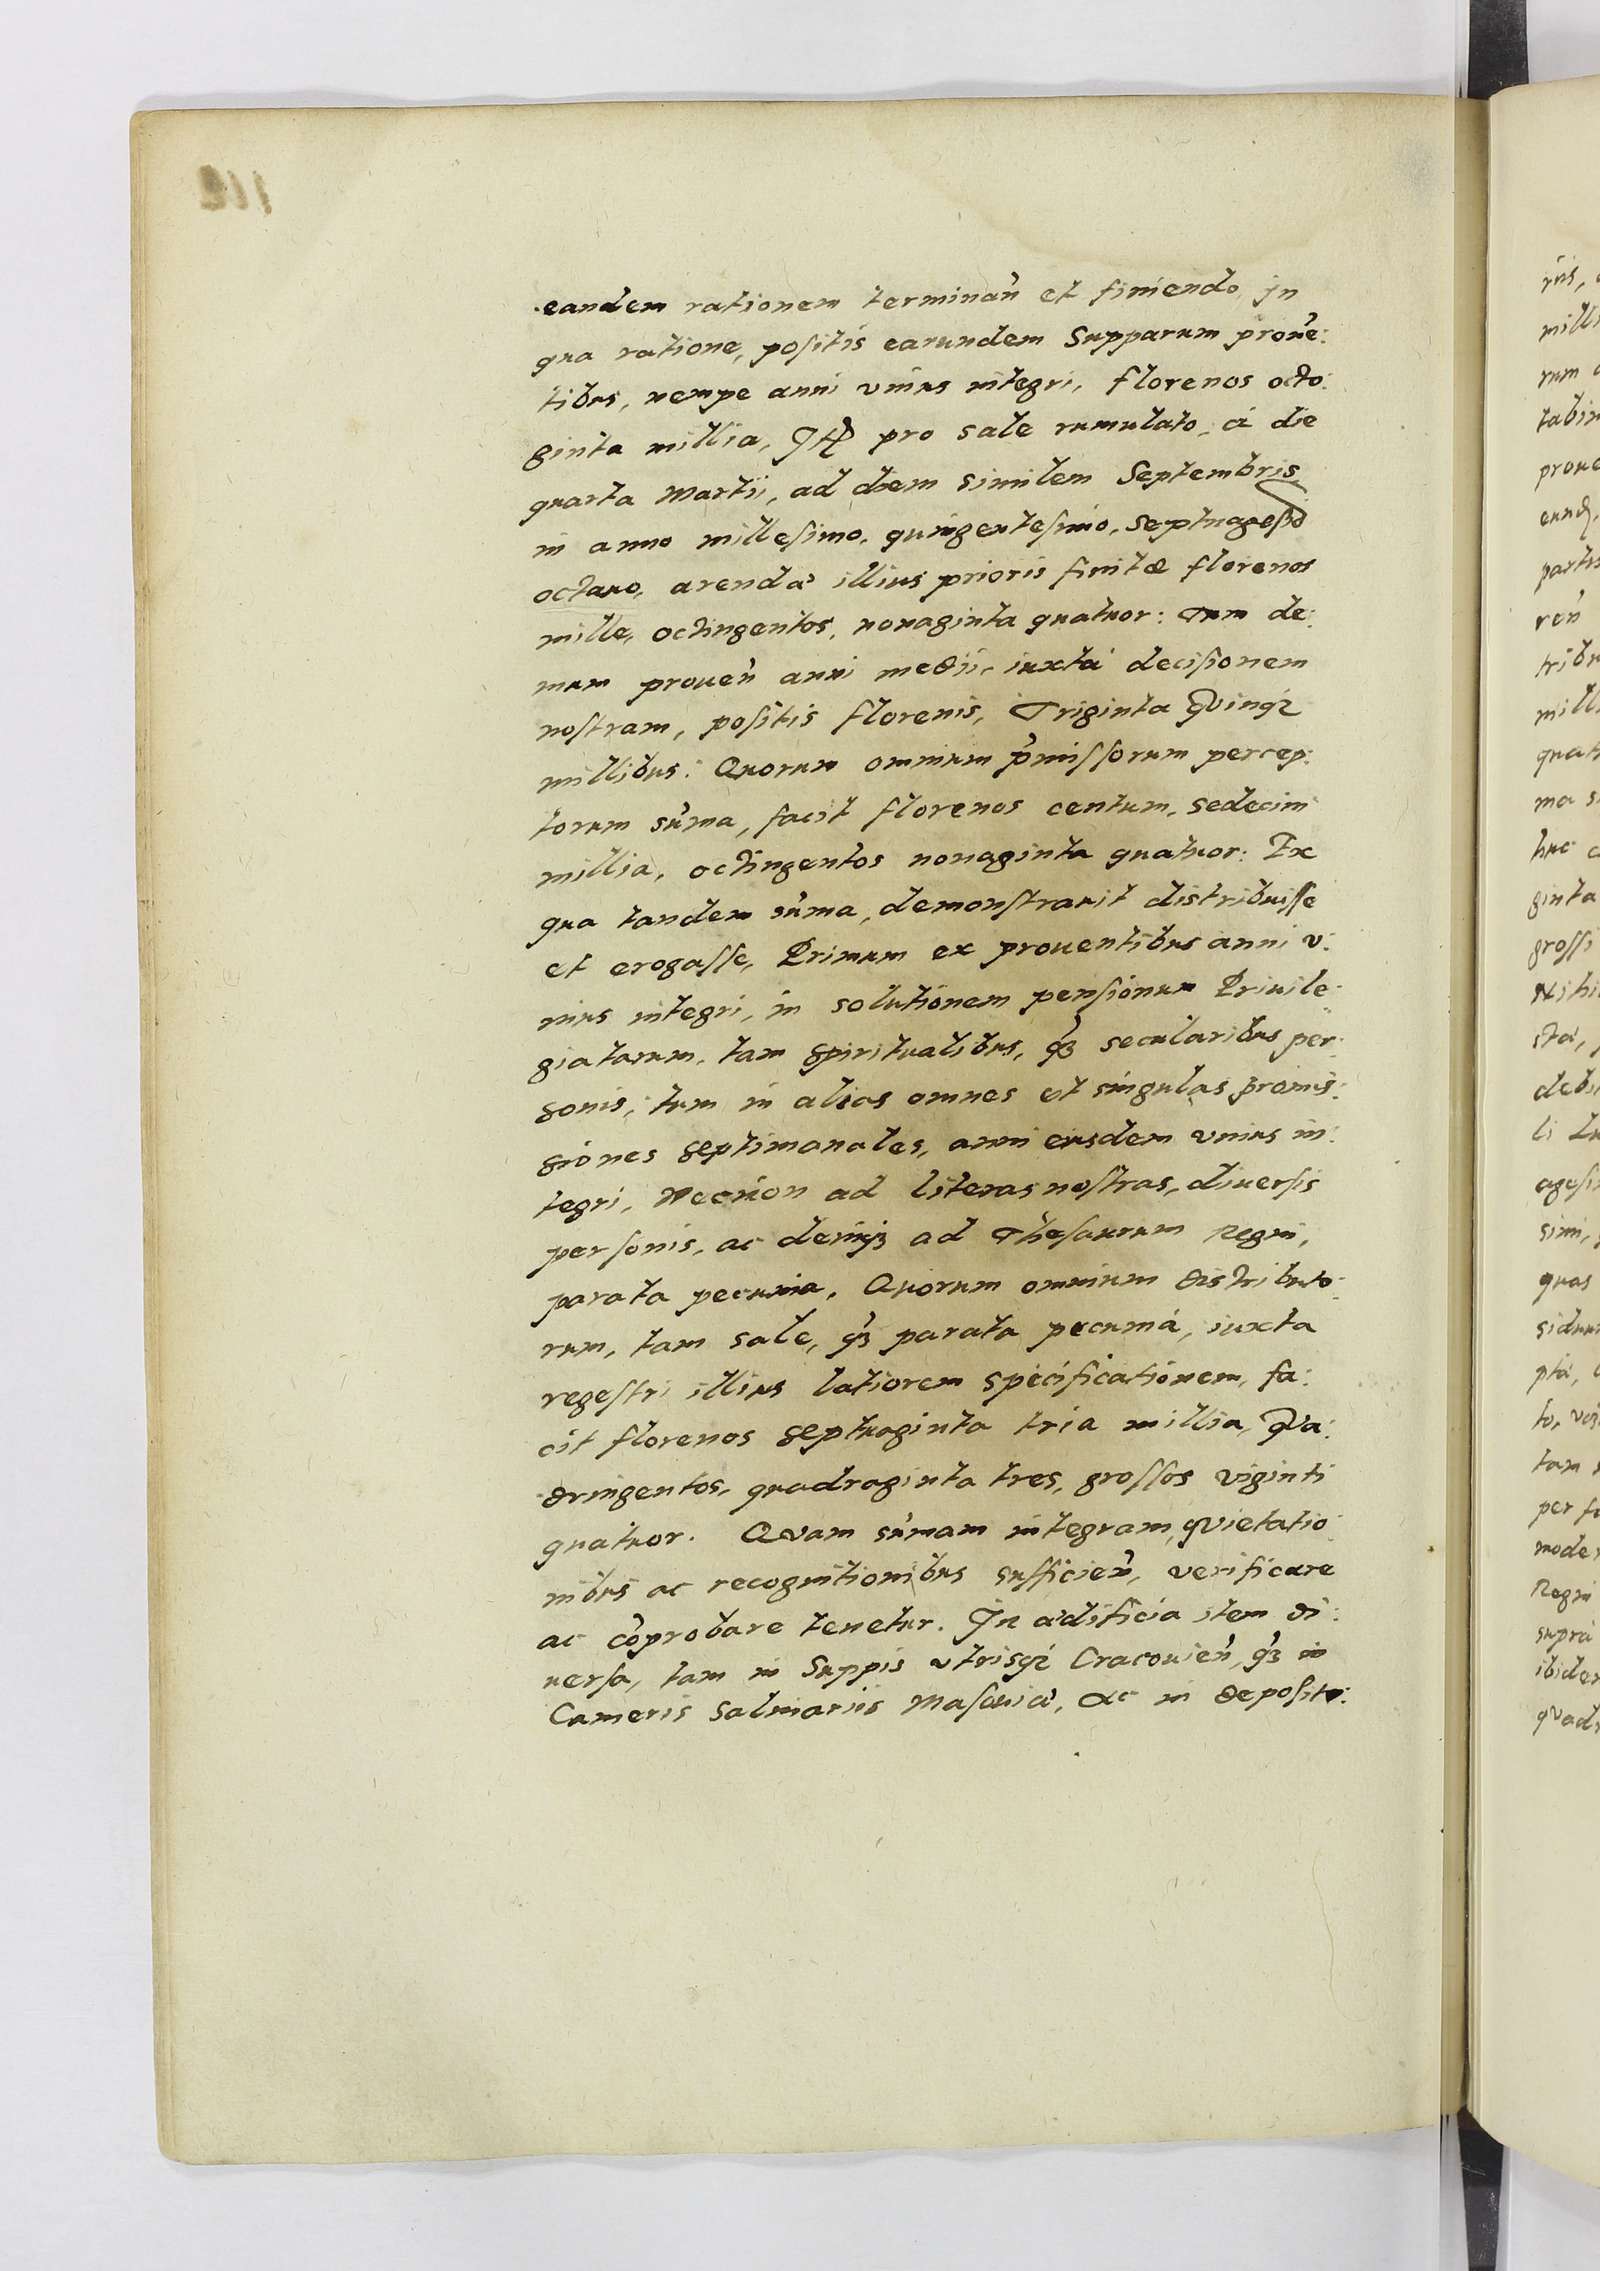 eandem rationem terminan̄ et finiendo, jn
qua ratione, positis earundem Supparum proue᷑:
tibus, nempe anni vnius integri, florenos octo:
ginta millia, Jt̄ pro sale cumulato, á die
quarta Martii, ad diem similem Septembris,
in anno millesimo, quingentesimo, septuagesīo
octauo, arendæ illius prioris finitæ florenos
mille, octingentos, nonaginta quatuor: Tum de:
mum prouen̄ anni medii, iuxtá decisionem
nostram, positis florenis, Triginta Quinqȝ
millibus: Quorum omnium p̄missorum percep:
torum sūma, facit florenos centum, sedecim
millia, octingentos nonaginta quatuor: Ex
qua tandem sūma, demonstrauit distribuisse
et erogasse, Primum ex prouentibus anni v:
nius integri, in solutionem pensionum Priuile:
giatarum, tam spiritualibus, q̄ȝ secularibus per:
sonis, tum in alias omnes et singulas prouis:
siones septimanales, anni eiusdem vnius in:
tegri, Necnon ad literas nostras, diuersis
personis, ac deniqȝ ad Thesaurum Regni,
parata pecunia. Quorum omnium distributo:
rum, tam sale, q̄ȝ parata pecuniá, iuxta
regestri illius latiorem specificationem, fa:
cit florenos septuaginta tria millia, Qua:
dringentos, quadraginta tres, grossos viginti
quatuor. Quam sūmam integram, quietatio:
nibus ac recognitionibus sufficien̄, verificare
ac cōprobare tenetur. In ædificia item di:
uersa, tam in Suppis vtrisqȝ Cracouien̄, q̄ȝ in
Cameris Salinariis Masouiæ, ac in deposito: